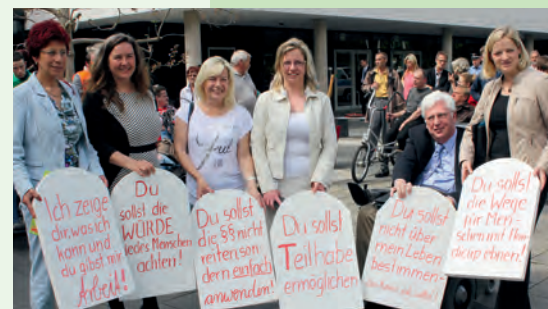 Ich zeige
dir, was ich
kann und
du gibst mir
Arbeit!
Du
sollst die
WÜRDE
jedes Menschen
achten!
Du sollst
die §§ nicht
reiten, son
dern einfach
anwenden!
Du sollst
Teilhabe
ermöglichen
Du sollst
nicht über
mein Leben
bestimmen-
Du sollst
die Wege
für Men-
schen mit
ebnen!